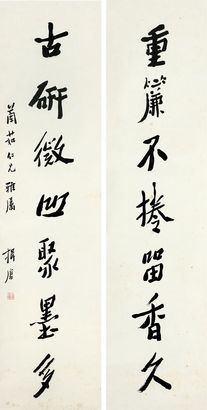 重簾不捲留香久
古研微凹聚墨多
蘭茹仁兄雅属
揖唐